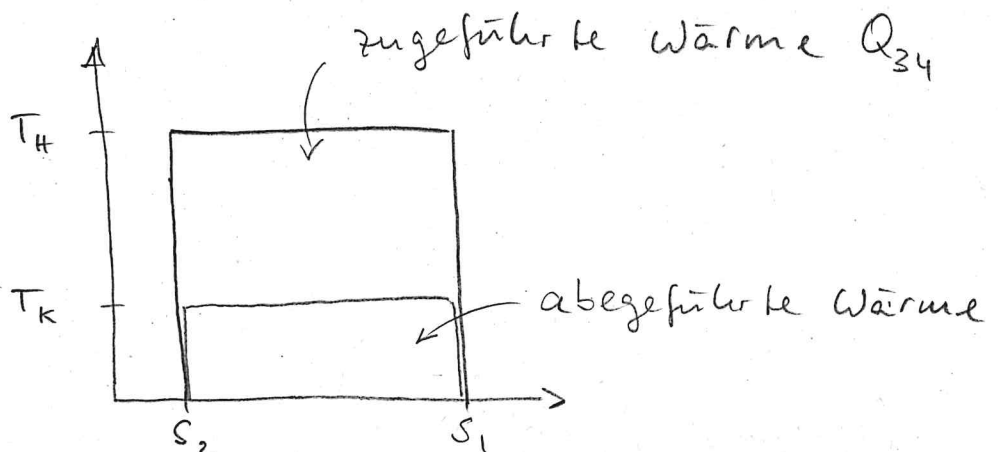 zugeführte Wärme Q₃₄
T_H
T_K
abegeführte Wärme
S₂
S₁